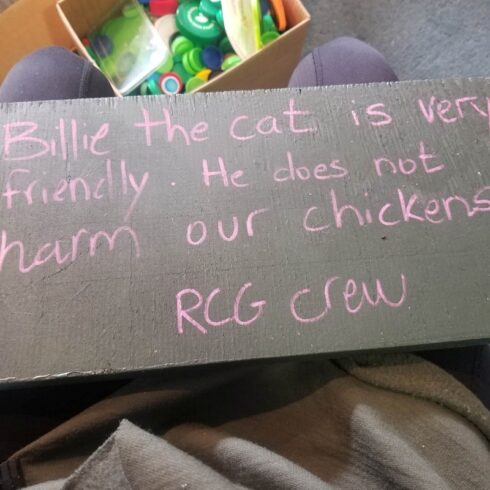 Billie the cat is very
friendly. He does not
harm our chickens
RCG crew